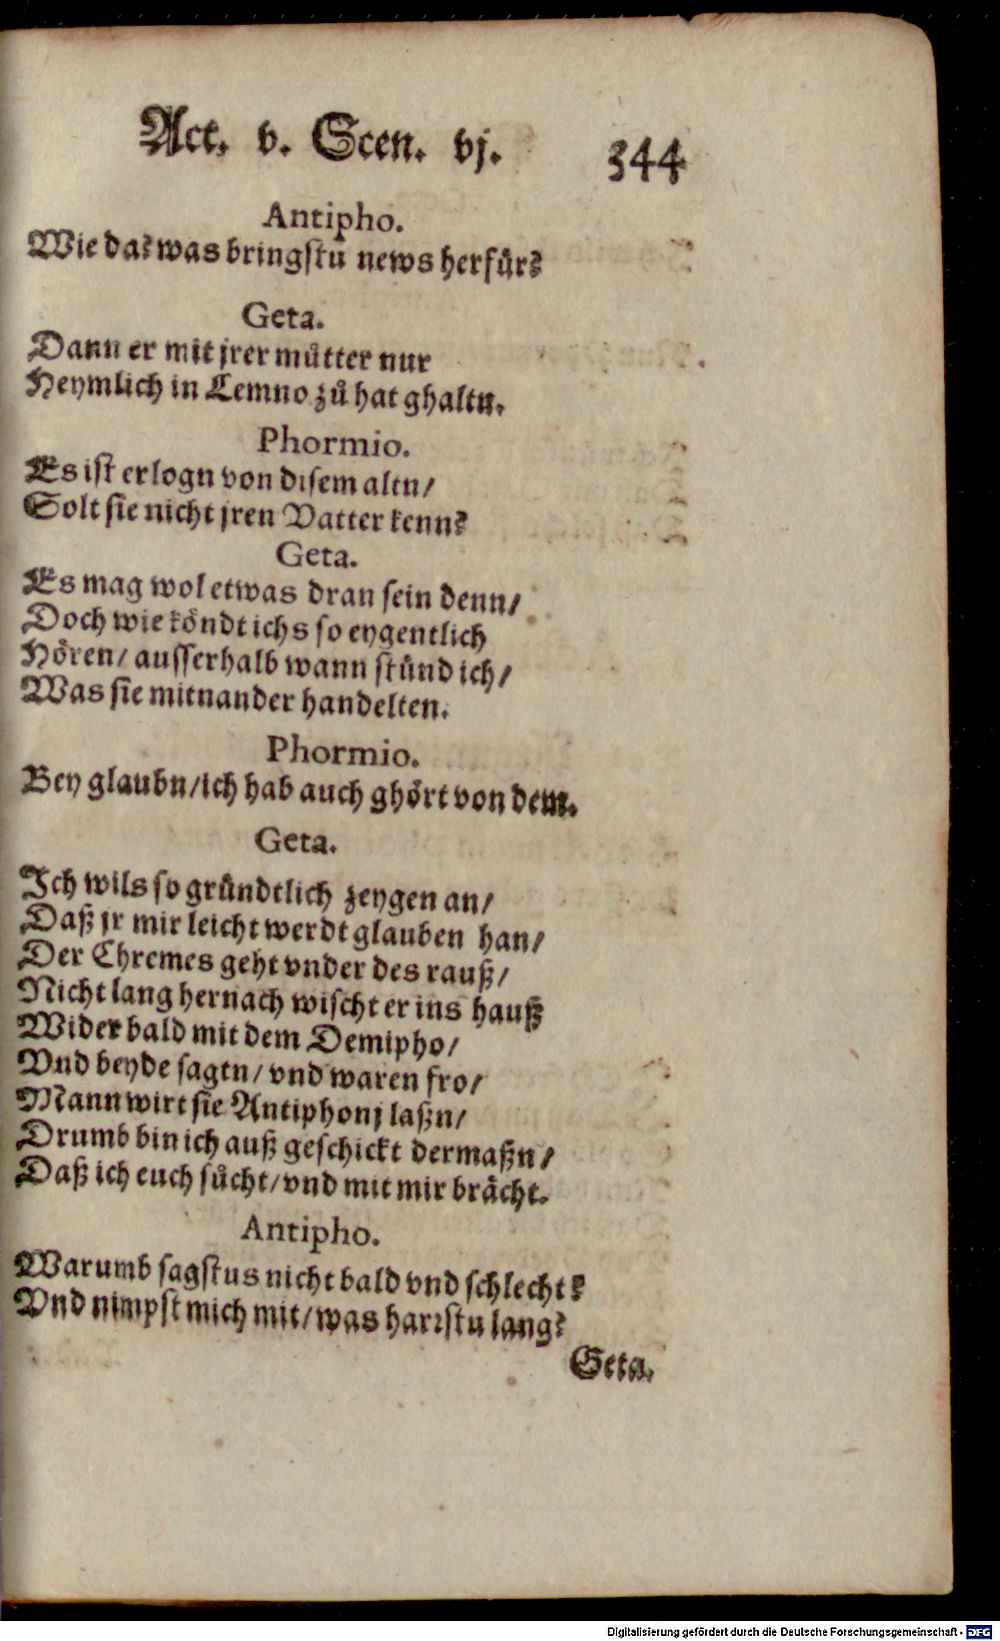 Act. v. Scen. vj. 344
Antipho.
Wie da? was bringstu news herfür?
Geta.
Dann er mit jrer můtter nur
Heymlich in Lemno zů hat ghaltn.
Phormio.
Es ist erlogn von disem altn/
Solt sie nicht jren Vatter kenn?
Geta.
Es mag wol etwas dran sein denn/
Doch wie köndt ichs so eygentlich
Hören/ ausserhalb wann stünd ich/
Was sie mitnander handelten.
Phormio.
Bey glaubn/ ich hab auch ghört von dem.
Geta.
Ich wils so gründtlich zeygen an/
Daß jr mir leicht werdt glauben han/
Der Chremes geht vnder des rauß/
Nicht lang hernach wischt er ins hauß
Wider bald mit dem Demipho/
Vnd beyde sagtn/ vnd waren fro/
Mann wirt sie Antiphonj laßn/
Drumb bin ich auß geschickt dermaßn/
Daß ich euch sůcht/ vnd mit mir brächt.
Antipho.
Warumb sagstus nicht bald vnd schlecht?
Vnd nimpst mich mit/ was harrstu lang?
Geta.
Digitalisierung gefördert durch die Deutsche Forschungsgemeinschaft - DFG